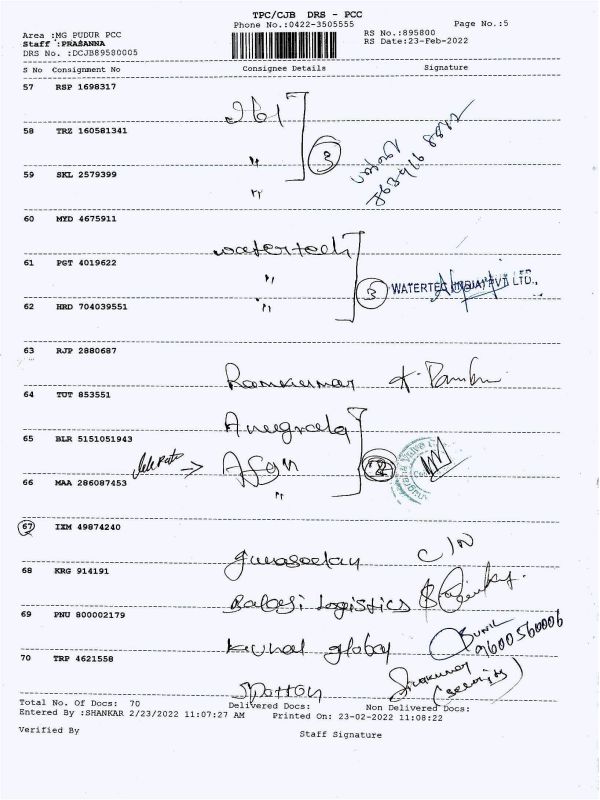 TPC/CJB DRS - PCC
Phone No.:0422-3505555
Page No.:5
Area :MG PUDUR PCC
RS No.:895800
Staff :PRASANNA
RS Date:23-Feb-2022
DRS No. :DCJB89580005
S No Consignment No Consignee Details Signature
57 RSP 1698317
261
58 TRZ 160581341
"
3
59 SKL 2579399
"
60 MYD 4675911
watertech
61 PGT 4019622
"
3 WATERTEC (INDIA) PVT LTD.,
62 HRD 704039551
"
63 RJP 2880687
Ramkumar
64 TUT 853551
Anugraha
65 BLR 5151051943
66 MAA 286087453
"
67 IXM 49874240
Gunaseelan C/N
68 KRG 914191
Balaji Logistics
69 PNU 800002179
Kunal global
SUNIL
9600560006
70 TRP 4621558
Sivakumar
(Security)
Spotton
Total No. Of Docs: 70 Delivered Docs: Non Delivered Docs:
Entered By :SHANKAR 2/23/2022 11:07:27 AM Printed On: 23-02-2022 11:08:22
Verified By Staff Signature